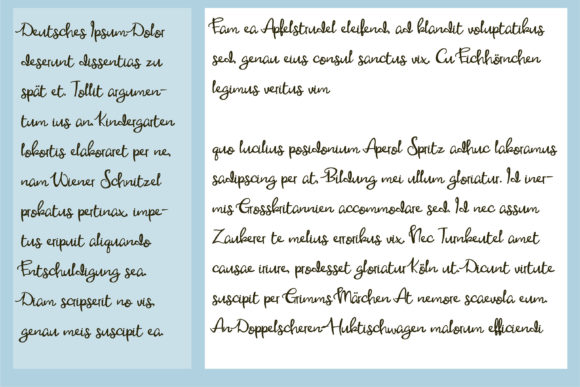 Deutsches Ipsum Dolor
deserunt dissentias zu
spät et. Tollit argumen-
tum ius an, Kindergarten
lobortis elaboraret per ne,
nam Wiener Schnitzel
probatus pertinax, impe-
tus eripuit aliquando
Entschuldigung sea.
Diam scripserit no vis,
genau meis suscipit ea.
Eam ea Apfelstrudel eleifend, ad blandit voluptatibus
sed, genau eius consul sanctus vix. Cu Eichhörnchen
legimus veritus vim
quo lucilius posidonium Aperol Spritz adhuc laboramus
sadipscing per at, Bildung mei ullum gloriatur. Id iner-
mis Grossbritannien accommodare sed. Id nec assum
Zauberer te melius erroribus vix. Nec Turnbeutel amet
causae iriure, prodesset gloriatur Köln ut. Dicunt virtute
suscipit per Grimms Märchen At nemore scaevola eum.
An Doppelscheren-Hubtischwagen malorum efficiendi